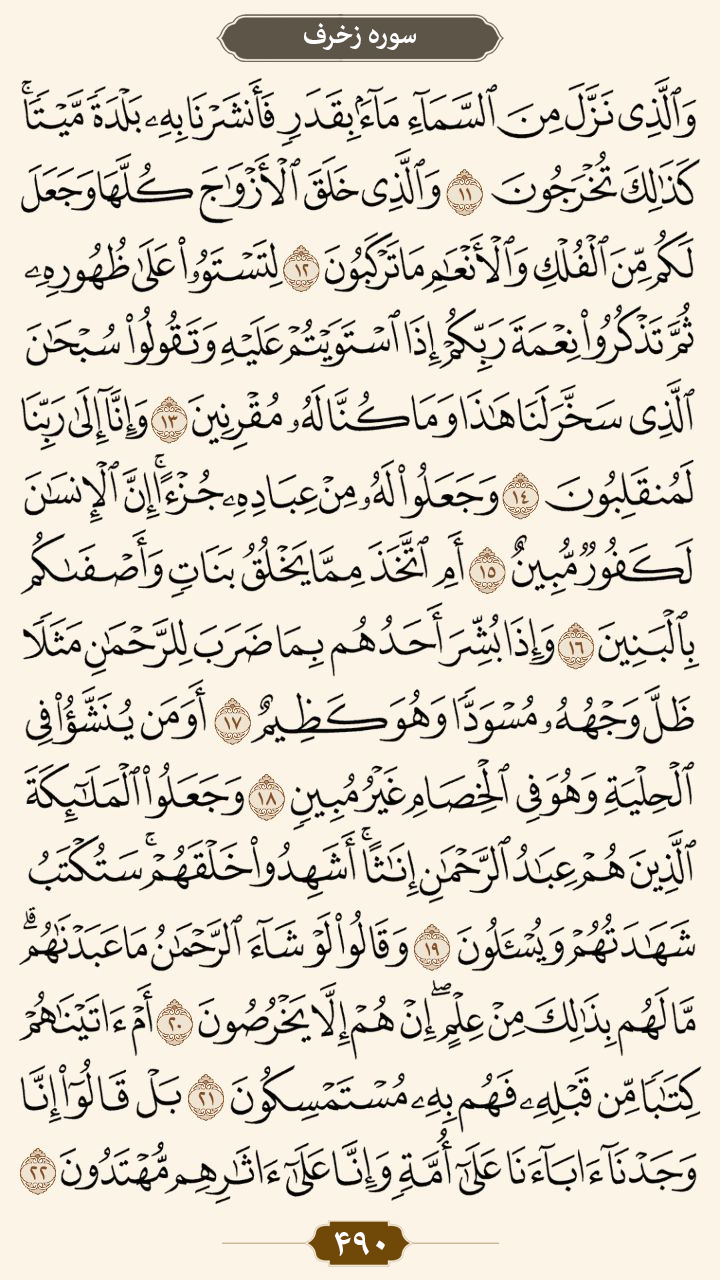 سوره زخرف
وَٱلَّذِى نَزَّلَ مِنَ ٱلسَّمَآءِ مَآءَۢ بِقَدَرٍ فَأَنشَرْنَا بِهِۦ بَلْدَةً مَّيْتًا ۚ
كَذَٰلِكَ تُخْرَجُونَ ١١ وَٱلَّذِى خَلَقَ ٱلْأَزْوَٰجَ كُلَّهَا وَجَعَلَ
لَكُم مِّنَ ٱلْفُلْكِ وَٱلْأَنْعَٰمِ مَا تَرْكَبُونَ ١٢ لِتَسْتَوُۥا۟ عَلَىٰ ظُهُورِهِۦ
ثُمَّ تَذْكُرُوا۟ نِعْمَةَ رَبِّكُمْ إِذَا ٱسْتَوَيْتُمْ عَلَيْهِ وَتَقُولُوا۟ سُبْحَٰنَ
ٱلَّذِى سَخَّرَ لَنَا هَٰذَا وَمَا كُنَّا لَهُۥ مُقْرِنِينَ ١٣ وَإِنَّآ إِلَىٰ رَبِّنَا
لَمُنقَلِبُونَ ١٤ وَجَعَلُوا۟ لَهُۥ مِنْ عِبَادِهِۦ جُزْءًا ۚ إِنَّ ٱلْإِنسَٰنَ
لَكَفُورٌ مُّبِينٌ ١٥ أَمِ ٱتَّخَذَ مِمَّا يَخْلُقُ بَنَاتٍ وَأَصْفَىٰكُم
بِٱلْبَنِينَ ١٦ وَإِذَا بُشِّرَ أَحَدُهُم بِمَا ضَرَبَ لِلرَّحْمَٰنِ مَثَلًا
ظَلَّ وَجْهُهُۥ مُسْوَدًّا وَهُوَ كَظِيمٌ ١٧ أَوَمَن يُنَشَّؤُا۟ فِى
ٱلْحِلْيَةِ وَهُوَ فِى ٱلْخِصَامِ غَيْرُ مُبِينٍ ١٨ وَجَعَلُوا۟ ٱلْمَلَٰٓئِكَةَ
ٱلَّذِينَ هُمْ عِبَٰدُ ٱلرَّحْمَٰنِ إِنَٰثًا ۚ أَشَهِدُوا۟ خَلْقَهُمْ ۚ سَتُكْتَبُ
شَهَٰدَتُهُمْ وَيُسْـَٔلُونَ ١٩ وَقَالُوا۟ لَوْ شَآءَ ٱلرَّحْمَٰنُ مَا عَبَدْنَٰهُم ۗ
مَّا لَهُم بِذَٰلِكَ مِنْ عِلْمٍ ۖ إِنْ هُمْ إِلَّا يَخْرُصُونَ ٢٠ أَمْ ءَاتَيْنَٰهُمْ
كِتَٰبًا مِّن قَبْلِهِۦ فَهُم بِهِۦ مُسْتَمْسِكُونَ ٢١ بَلْ قَالُوٓا۟ إِنَّا
وَجَدْنَآ ءَابَآءَنَا عَلَىٰٓ أُمَّةٍ وَإِنَّا عَلَىٰٓ ءَاثَٰرِهِم مُّهْتَدُونَ ٢٢
۴۹۰